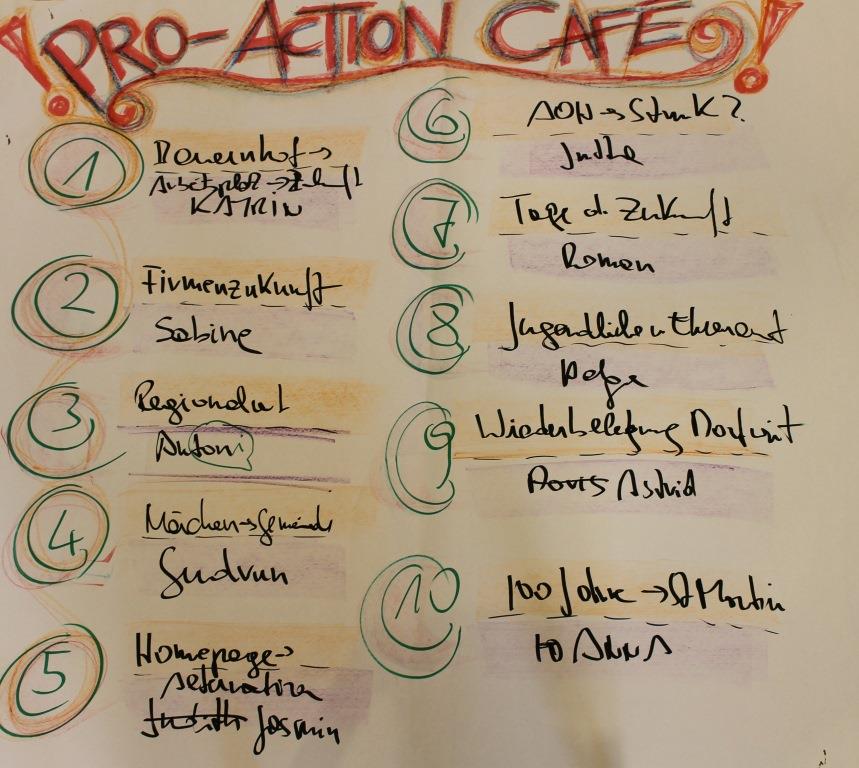 PRO-ACTION CAFE!
1
Bauernhof→
Arbeitsplatz→Zukunft
KATRIN
2
Firmenzukunft
Sabine
3
Regionalut
Antoni
4
Märchen→Gemeinde
Gudrun
5
Homepage→
Alternativen
Judith Jasmin
6
AOH→Struk?
Jutta
7
Tage d. Zukunft
Roman
8
Jugendliche Ehrenamt
Helga
9
Wiederbelebung Dorfwirt
Doris Astrid
10
100 Jahre →St Martin
ANNA